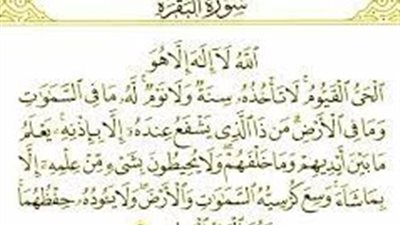 سُورَةُ البَقَرَةِ
ٱللَّهُ لَآ إِلَٰهَ إِلَّا هُوَ
ٱلْحَىُّ ٱلْقَيُّومُ لَا تَأْخُذُهُۥ سِنَةٌ وَلَا نَوْمٌ لَّهُۥ مَا فِى ٱلسَّمَٰوَٰتِ
وَمَا فِى ٱلْأَرْضِ مَن ذَا ٱلَّذِى يَشْفَعُ عِندَهُۥٓ إِلَّا بِإِذْنِهِۦ يَعْلَمُ
مَا بَيْنَ أَيْدِيهِمْ وَمَا خَلْفَهُمْ وَلَا يُحِيطُونَ بِشَىْءٍ مِّنْ عِلْمِهِۦٓ إِلَّا
بِمَا شَآءَ وَسِعَ كُرْسِيُّهُ ٱلسَّمَٰوَٰتِ وَٱلْأَرْضَ وَلَا يَـُٔودُهُۥ حِفْظُهُمَا